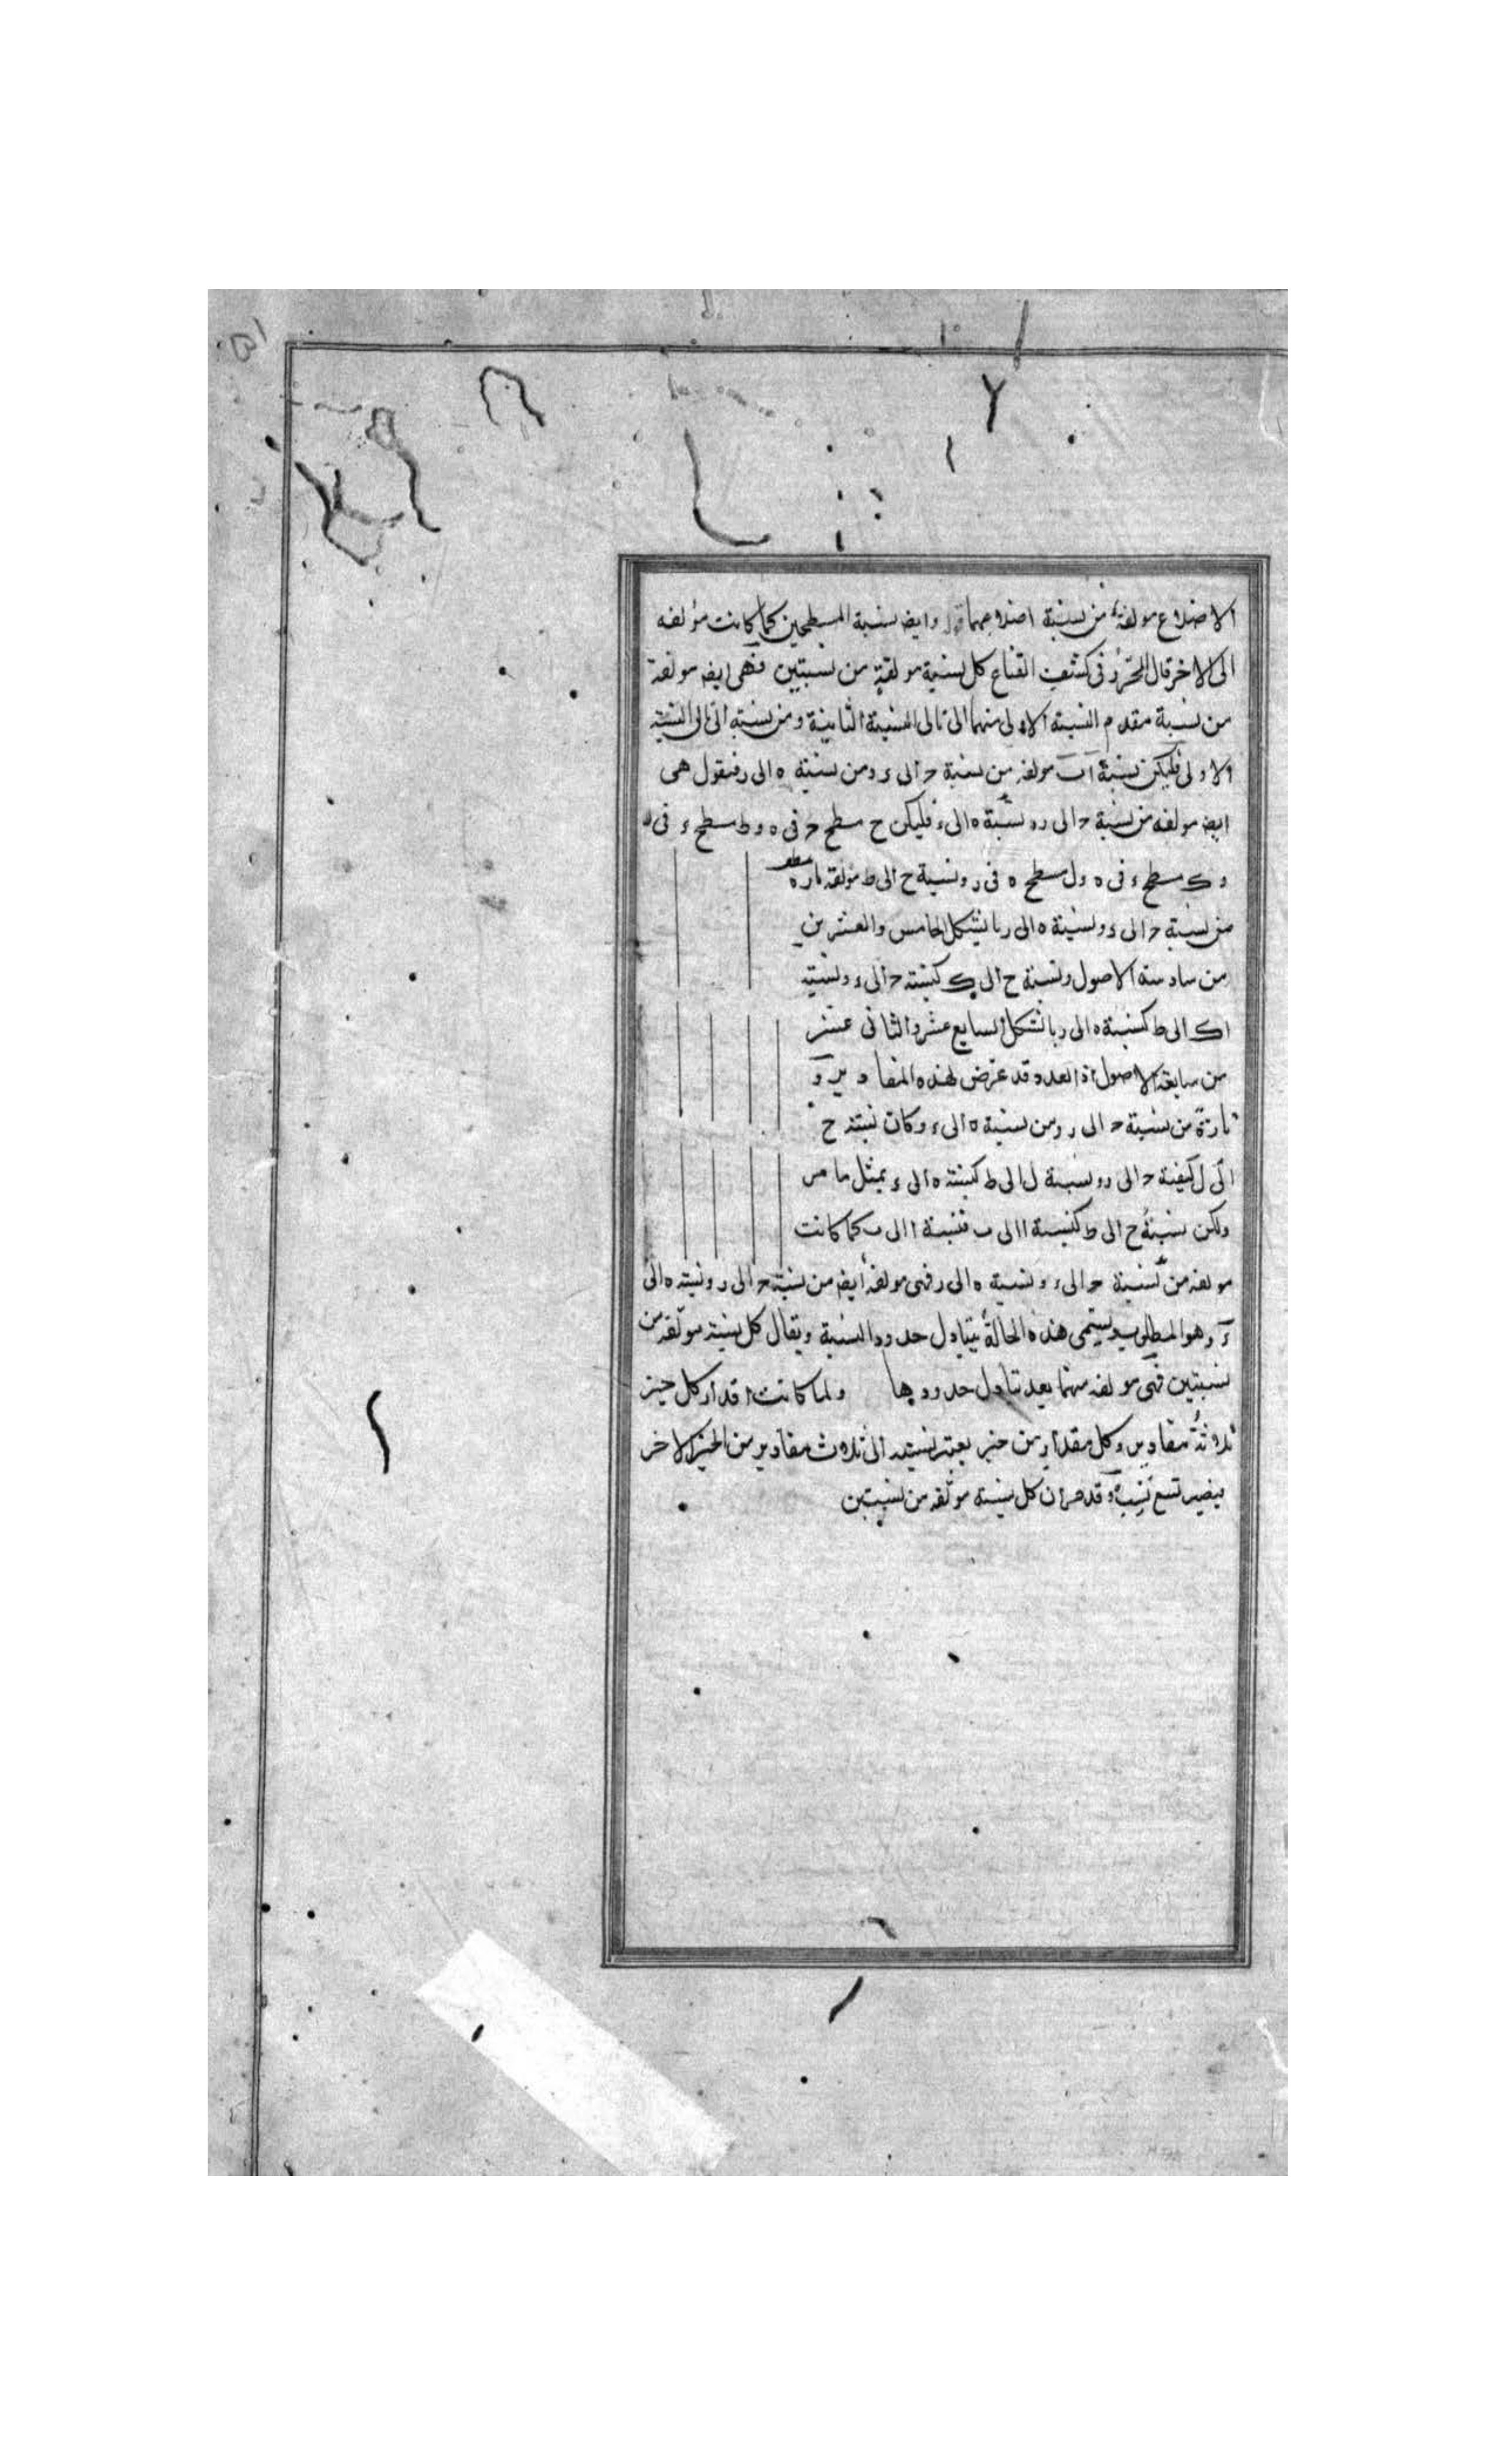 الاضلاع مولفة من نسبة اضلاعهما وايضا نسبة المسطحين كما كانت مولفه
الى الاخر قال المحرر فى كشف القناع كل نسبة مولفة من نسبتين فهى ايضه مولفة
من نسبة مقدم النسبة الاولى منهما الى تالى النسبة الثانية ومن نسبة الى تالى النسبة
الاولى فليكن نسبة ا ب مولفه من نسبة ح الى ء ومن نسبة ه الى ر فنقول هى
ايضه مولفه من نسبة ح الى ر ونسبة ه الى ء فليكن ح مسطح ح فى ه و ط مسطح ء فى ر
و ك مسطح ء فى ه و ل مسطح ه فى ر ونسبة ح الى ط مولفة تارة
من نسبة ح الى ء ونسبة ه الى ر بالشكل الخامس والعشرين
من سادسة الاصول ونسبة ح الى ك كنسبة ح الى ء ونسبة
ك الى ط كنسبة ه الى ر بالشكل السابع عشر والثانى عشر
من سابعة الاصول اذ العدد قد عرض لهذه المقادير و
تارة من نسبة ح الى ر ومن نسبة ه الى ء وكان نسبة ح
الى ل كنسبة ح الى ر ونسبة ل الى ط كنسبة ه الى ء بمثل ما مر
ولكن نسبة ح الى ط كنسبة ا الى ب فنسبة ا الى ب كما كانت
مولفه من نسبة ح الى ء ونسبة ه الى ر فهى مولفة ايضه من نسبة ح الى ر ونسبة ه الى
ء وهو المطلوب ويسمى هذه الحالة بتبادل حدود النسبة ويقال كل نسبة مولفه من
نسبتين فهى مولفه منهما بعد تبادل حدودها ولما كانت اقدار كل حيز
ثلاثة مقادير وكل مقدار من حيز يعتبر نسبته الى ثلاث مقادير من الحيز الاخر
فيصير تسع نسب وقد مر ان كل نسبة مولفه من نسبتين